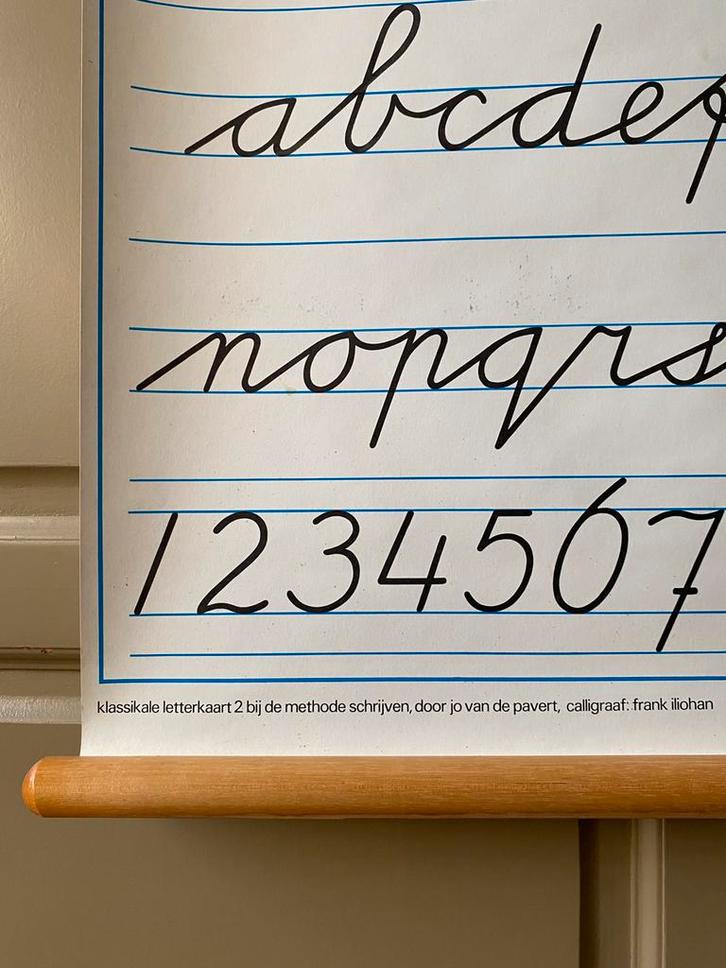 abcdef
nopqrs
1234567
klassikale letterkaart 2 bij de methode schrijven, door jo van de pavert, calligraaf: frank iliohan